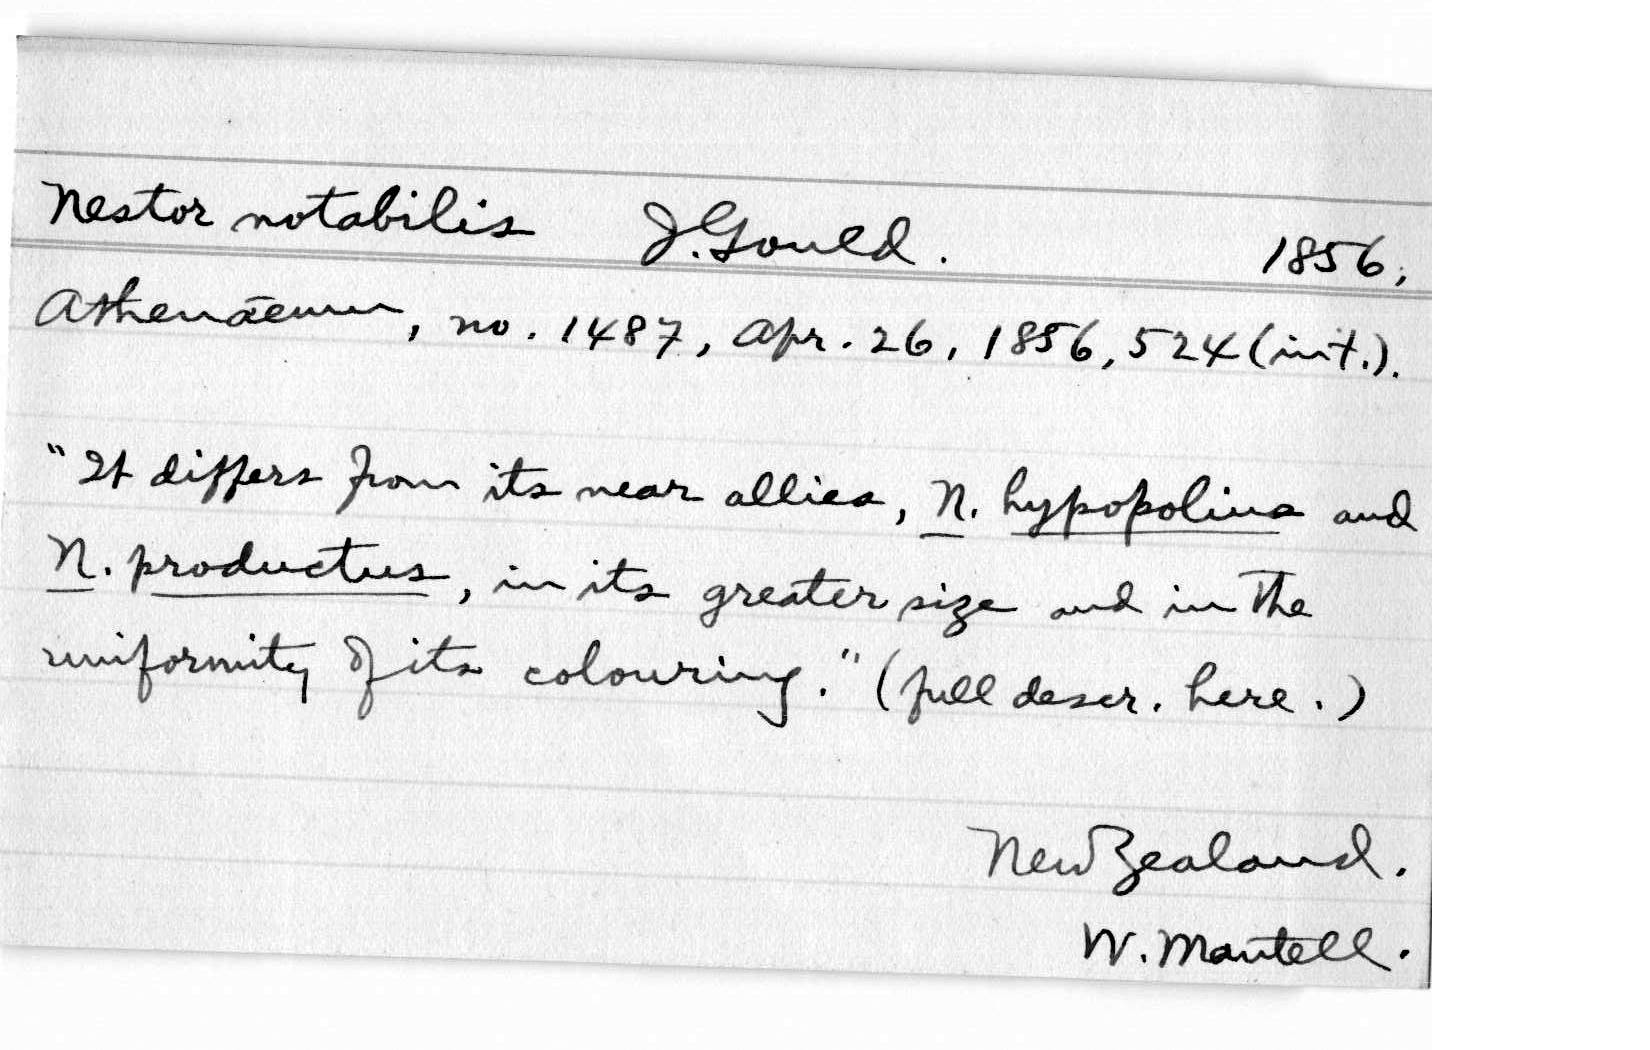 Nestor notabilis J. Gould. 1856,
Athenāeum, no. 1487, Apr. 26, 1856, 524 (int.).
"It differs from its near allies, N. hypopolius and
N. productus, in its greater size and in the
uniformity of its colouring." (full descr. here.)
New Zealand.
W. Mantell.